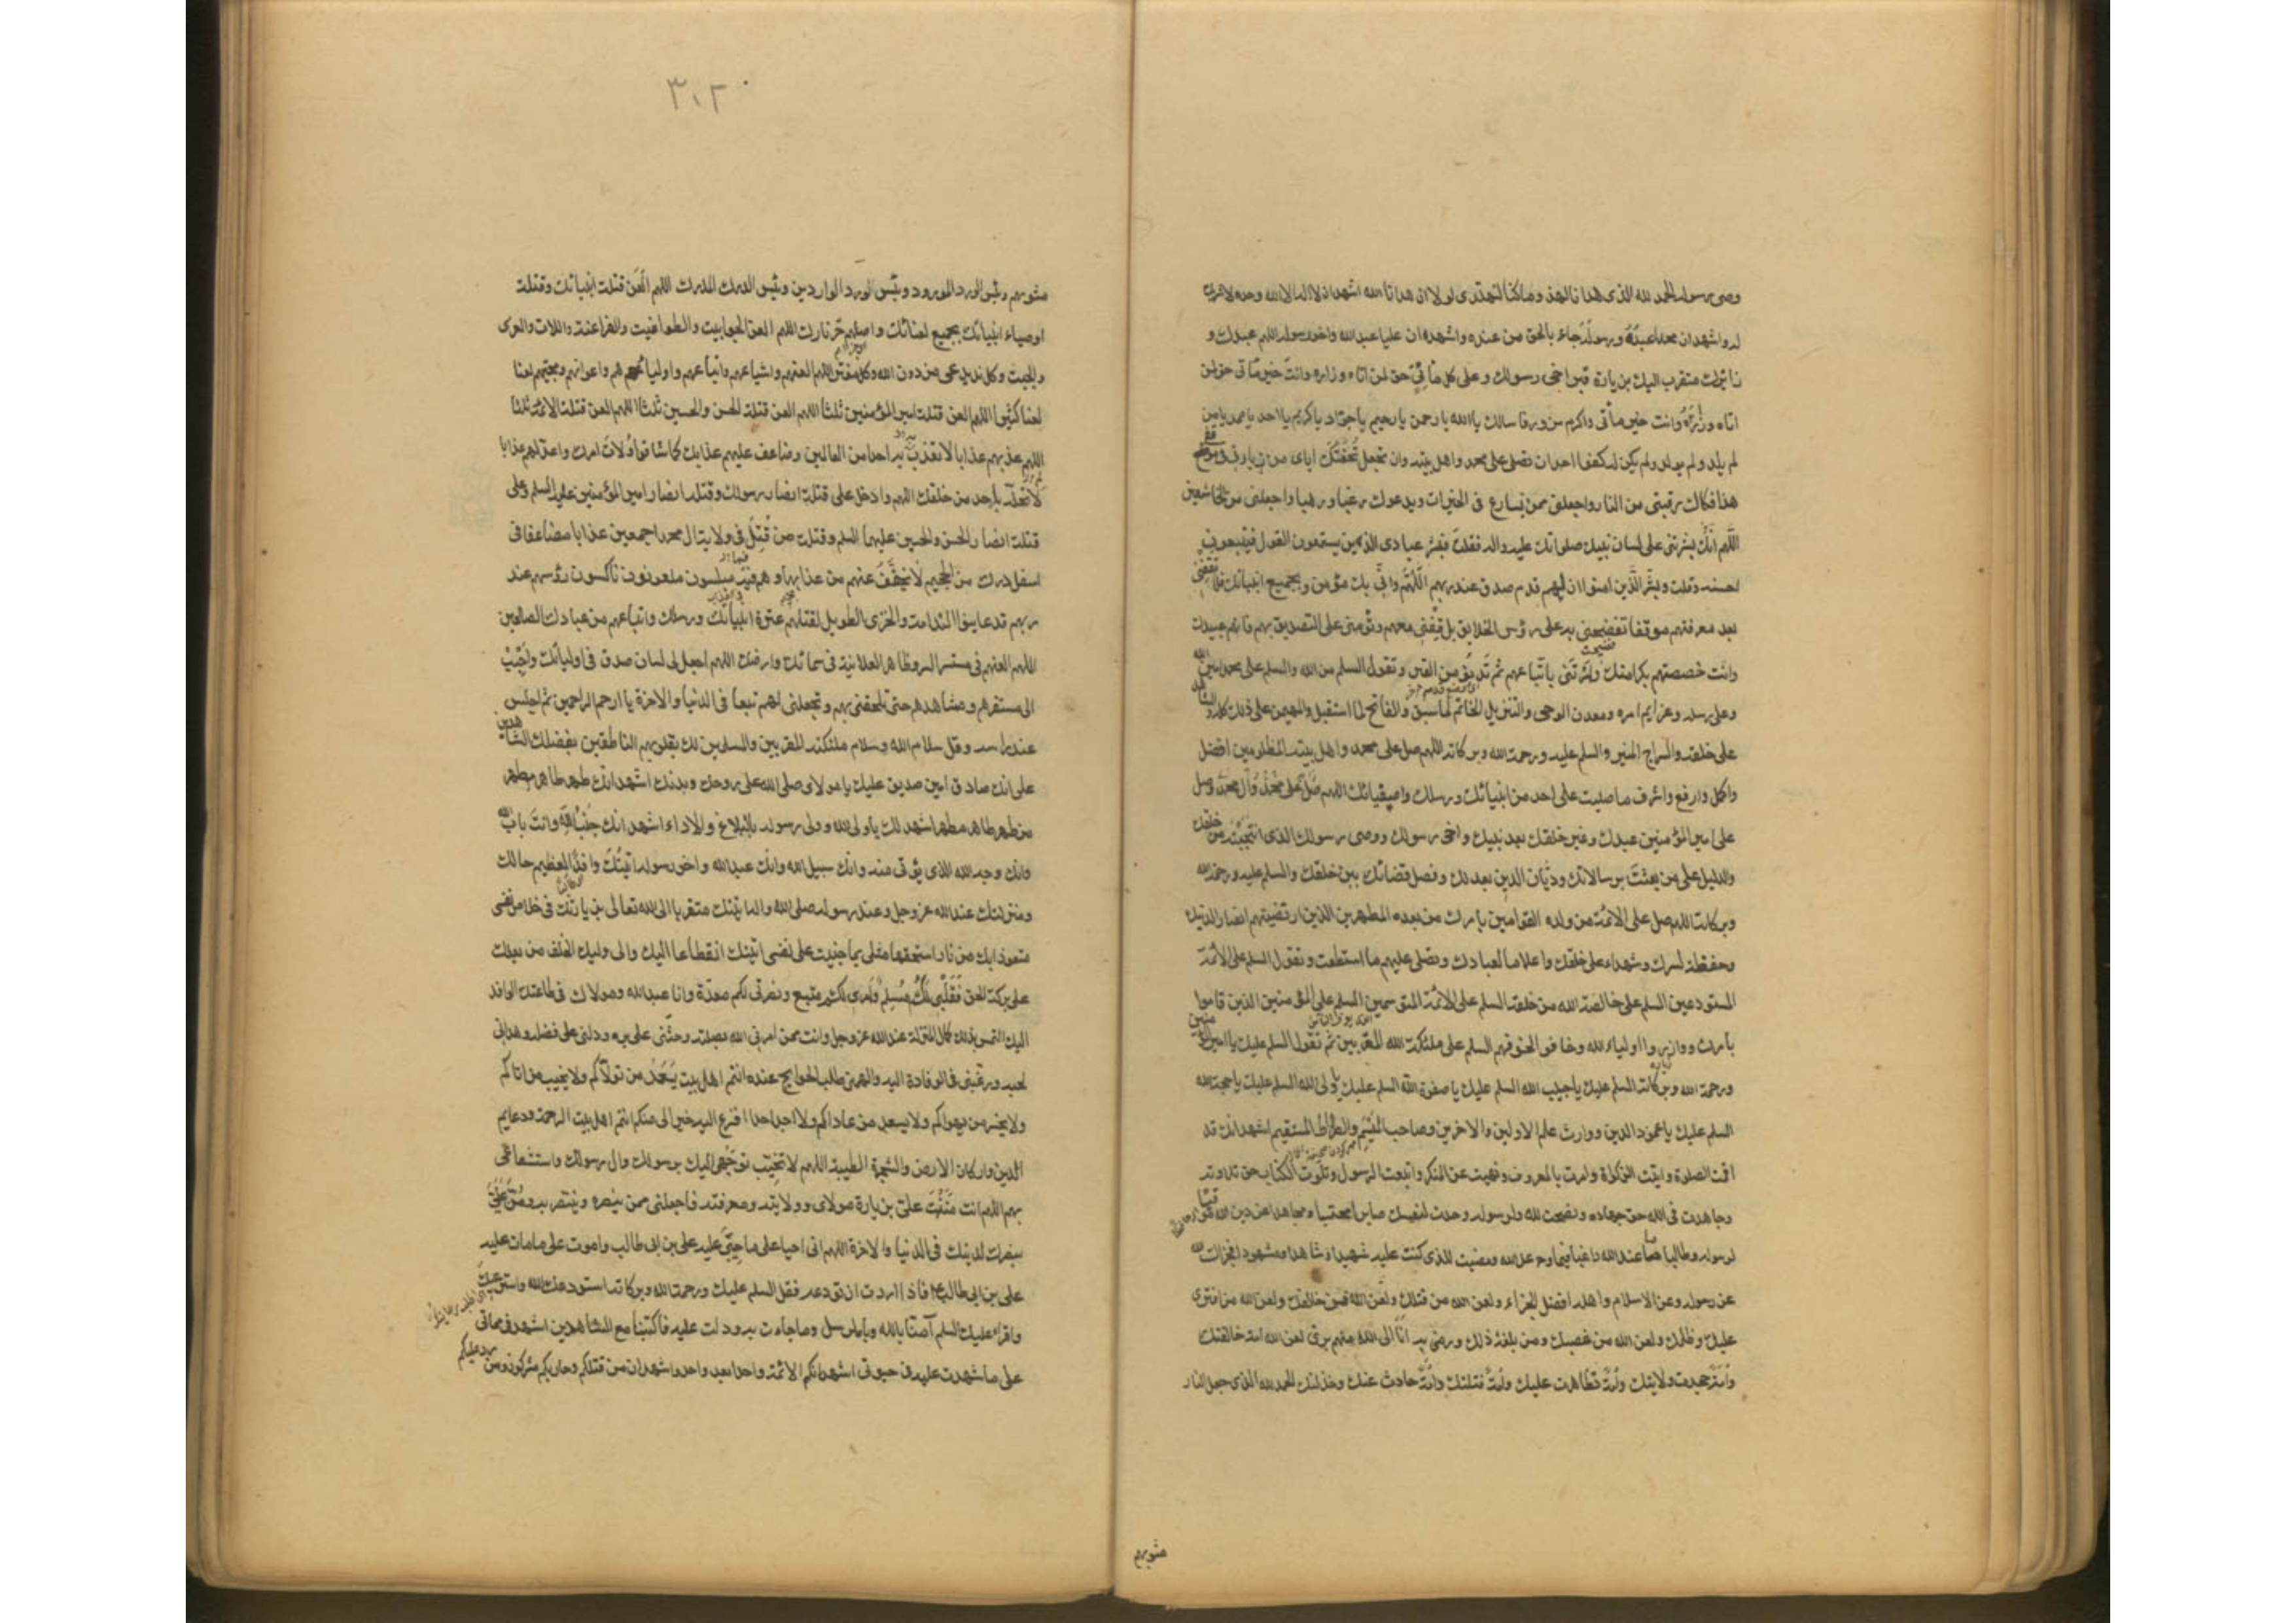 وصى رسوله الحمد لله الذى هدانا لهذا وماكنا لنهتدى لولا ان هدانا الله اشهد ان لا اله الا الله وحده لا شريك
له واشهد ان محمدا عبدُهُ ورسولُهُ جاء بالحق من عنده واشهد ان عليا عبد الله واخو رسوله اللهم عبدك و
زائرك متقرب اليك بزيارة قبر اخى رسولك وعلى كل مأتىّ حق لمن اتاه وزاره وانت خير مأتى حق لمن
اتاه وزَارَهُ وانت خير مأتى واكرم مزور فاسالك ياالله يارحمن يارحيم ياجواد ياكريم يااحد ياصمد يامن
لم يلد ولم يولد ولم يكن له كفوا احد ان تصلى على محمد واهل بيته وان تجعل تُحْفَتَكَ اياى من زيارتى فى موقفى
هذا فكاك رقبتى من النار واجعلنى ممن يسارع فى الخيرات ويدعوك رغبا ورهبا واجعلنى من الخاشعين
اللّهم انّك بشرتنى على لسان نبيك صلواتك عليه واله فقلت فبشر عبادى الذين يستمعون القول فيتبعون
احسنه وقلت وبشّر الّذين امنوا ان لهم قدم صدق عند ربهم اللّهم وانّى بك مؤمن وبجميع انبيائك فلا تقفنى
بعد معرفتهم موقفا تفضحنى به على رؤس الخلايق بل قِفْنى معهم وتوفنى على التصديق بهم فانهم عبيدك
وانت خصصتهم بكرامتك وامرتنى باتباعهم ثم تدنو من القبر وتقول السلم من الله والسلم على محمد امين الله
وعلى رسله وعزايم امره ومعدن الوحى والتنزيل الخاتم لما سبق والفاتح لما استقبل والمهيمن على ذلك كله والشاهد
على خلقه والسراج المنير والسلم عليه ورحمة الله وبركاته اللهم صل على محمد واهل بيته المظلومين افضل
واكمل وارفع واشرف ما صليت على احد من انبيائك ورسلك واصفيائك اللهم صل على محمد وآل محمد وصل
على امير المؤمنين عبدك وخير خلقك بعد نبيك واخى رسولك ووصى رسولك الذى انتجبته من خلقك
والدليل على من بعثتَ برسالاتك وديّان الدين بعدلك وفصل قضائك بين خلقك والسلم عليه ورحمة الله
وبركاته اللهم صل على الائمة من ولده القوامين بامرك من بعده المطهرين الذين ارتضيتهم انصارا لدينك
وحفظة لسرك وشهداء على خلقك واعلاما لعبادك وتصلى عليهم ما استطعت وتقول السلم على الائمة
المستودعين السلم على خالصة الله من خلقه السلم على الائمة المتوسمين السلم على المؤمنين الذين قاموا
بامرك ووازروا اولياء الله وخافوا لخوفهم السلم على ملئكة الله المقربين ثم تقول السلم عليك ياامير المؤمنين
ورحمة الله وبركاته السلم عليك ياحبيب الله السلم عليك ياصفوة الله السلم عليك ياولى الله السلم عليك ياحجة الله
السلم عليك ياعمود الدين ووارث علم الاولين والاخرين وصاحب المِيْسَم والصّراط المستقيم اشهد انك قد
اقمت الصلوة وايتت الزكوة وامرت بالمعروف ونهيت عن المنكر واتبعت الرسول وتلوت الكتاب حق تلاوته
وجاهدت فى الله حق جهاده ونصحت لله ولرسوله وجدت لنفسك صابرا محتسبا ومجاهدا عن دين الله
لرسوله وطالبا ما عند الله راغبا فيما وعد الله ومضيت للذى كنت عليه شهيدا وشاهدا ومشهودا فجزاك الله
عن رسوله وعن الاسلام واهله افضل الجزاء ولعن الله من قتلك ولعن الله من خالفك ولعن الله من افترى
عليك وظلمك ولعن الله من غصبك ومن بلغه ذلك ورضى به انّا الى الله منهم برى لعن الله امة خالفتك
وامّة جحدت ولايتك وامّةً تظاهرت عليك وامّة قتلتك وامّة حادت عنك وخذلتك الحمد لله الذى جعل النار
مثويهم
٣٠٢
مثويهم وبئس الورد المورود وبئس الورد الواردين وبئس الدرك المدرك اللهم العَن قتلة انبيائك وقتلة
اوصياء انبيائك بجميع لعناتك واصلهم حرّ نارك اللهم العن الجوابيت والطواغيت والفراعنة واللات والعزى
والجبت وكل ند يدعى من دون الله وكل مفتر اللهم العنهم واشياعهم واتباعهم واولياءهم واعوانهم ومحبيهم لعنا
لعنا كثيرا اللهم العن قتلة امير المؤمنين ثلثا اللهم العن قتلة الحسن والحسين ثلثا اللهم العن قتلة الائمة ثلثا
اللهم عذبهم عذابا لا تعذب به احدا من العالمين وضاعف عليهم عذابك كما شاقوا ولاة امرك واعد لهم عذابا
لم تحله باحد من خلقك اللهم وادخل على قتلة انصار رسولك وقتلة انصار امير المؤمنين عليه السلم وعلى
قتلة انصار الحسن والحسين عليهما السلم وقتلة من قُتِلَ فى ولاية ال محمد اجمعين عذابا مضاعفا فى
اسفل درك من الجحيم لا يخفّف عنهم من عذابها وهم فيه مبلسون ملعونون ناكسون رؤسهم عند
ربهم قد عاينوا الندامة والخزى الطويل لقتلهم عترة انبيائك ورسلك واتباعهم من عبادك الصالحين
اللهم العنهم فى مستسر السر وظاهر العلانية فى سمائك وارضك اللهم اجعل لى لسان صدق فى اوليائك وحَبّب
الى مستقرهم ومشاهدهم حتى تلحقنى بهم وتجعلنى لهم تبعا فى الدنيا والاخرة ياارحم الراحمين ثم اجلس
عند راسه وقل سلام الله وسلام ملئكته المقربين والمسلمين لك بقلوبهم الناطقين بفضلك الشاهدين
على انك صادق امين صديق عليك يامولاى صلى الله على روحك وبدنك اشهد انك طهر طاهر مطهر
من طهر طاهر مطهر اشهد لك ياولى الله وولى رسوله بالبلاغ والاداء اشهد انك جنب الله وانت باب الله
وانك وجه الله الذى يؤتى منه وانك سبيل الله وانك عبد الله واخو رسوله اتيتك وافدا لعظيم حالك
ومنزلتك عند الله عز وجل وعند رسوله صلى الله واله اتيتك متقربا الى الله تعالى بزيارتك فى خلاص نفسى
متعوذا بك من نار استحقها مثلى بما جنيت على نفسى اتيتك انقطاعا اليك والى وليك الخلف من بعدك
على بركة الحق فَقَلْبى لك مُسَلِّم وامرى لك متبع ونصرتى لكم معدّة وانا عبد الله ومولاك فى طاعتك الوافد
اليك التمس بذلك كمال المنزلة عند الله عز وجل وانت ممن امرنى الله بصلته وحثّنى على بره ودلنى على فضله وهدانى
لحبه ورغبنى فى الوفادة اليه والهمنى طلب الحوايج عنده انتم اهل بيت يَسْعَدُ من تولاّكم ولا يخيب من اتاكم
ولا يخسر من يهواكم ولا يسعد من عاداكم ولا اجد احدا افزع اليه خيرا لى منكم انتم اهل بيت الرحمة ودعايم
الدين واركان الارض والشجرة الطيبة اللهم لا تخيّب توجّهى اليك برسولك وال رسولك واستشفاعى
بهم اللهم انت مَنَنْتَ علىّ بزيارة مولاى وولايته ومعرفته فاجعلنى ممن ينصره وينتصر به ومُنَّ علىّ
بنصرك لدينك فى الدنيا والاخرة اللهم انى احيا على ما حيّى عليه على بن ابى طالب واموت على مامات عليه
على بن ابى طالب فاذا اردت ان تودعه فقل السلم عليك ورحمة الله وبركاته استودعك الله واسترعيك
واقراء عليك السلم آمنّا بالله وبالرسل وماجاءت به ودلت عليه فاكتبنا مع الشاهدين اشهد فى مماتى
على ما شهدت عليه فى حيوتى اشهد انكم الائمة واحدا بعد واحد واشهد ان من قتلكم وحاربكم مشركون ومن رد عليكم